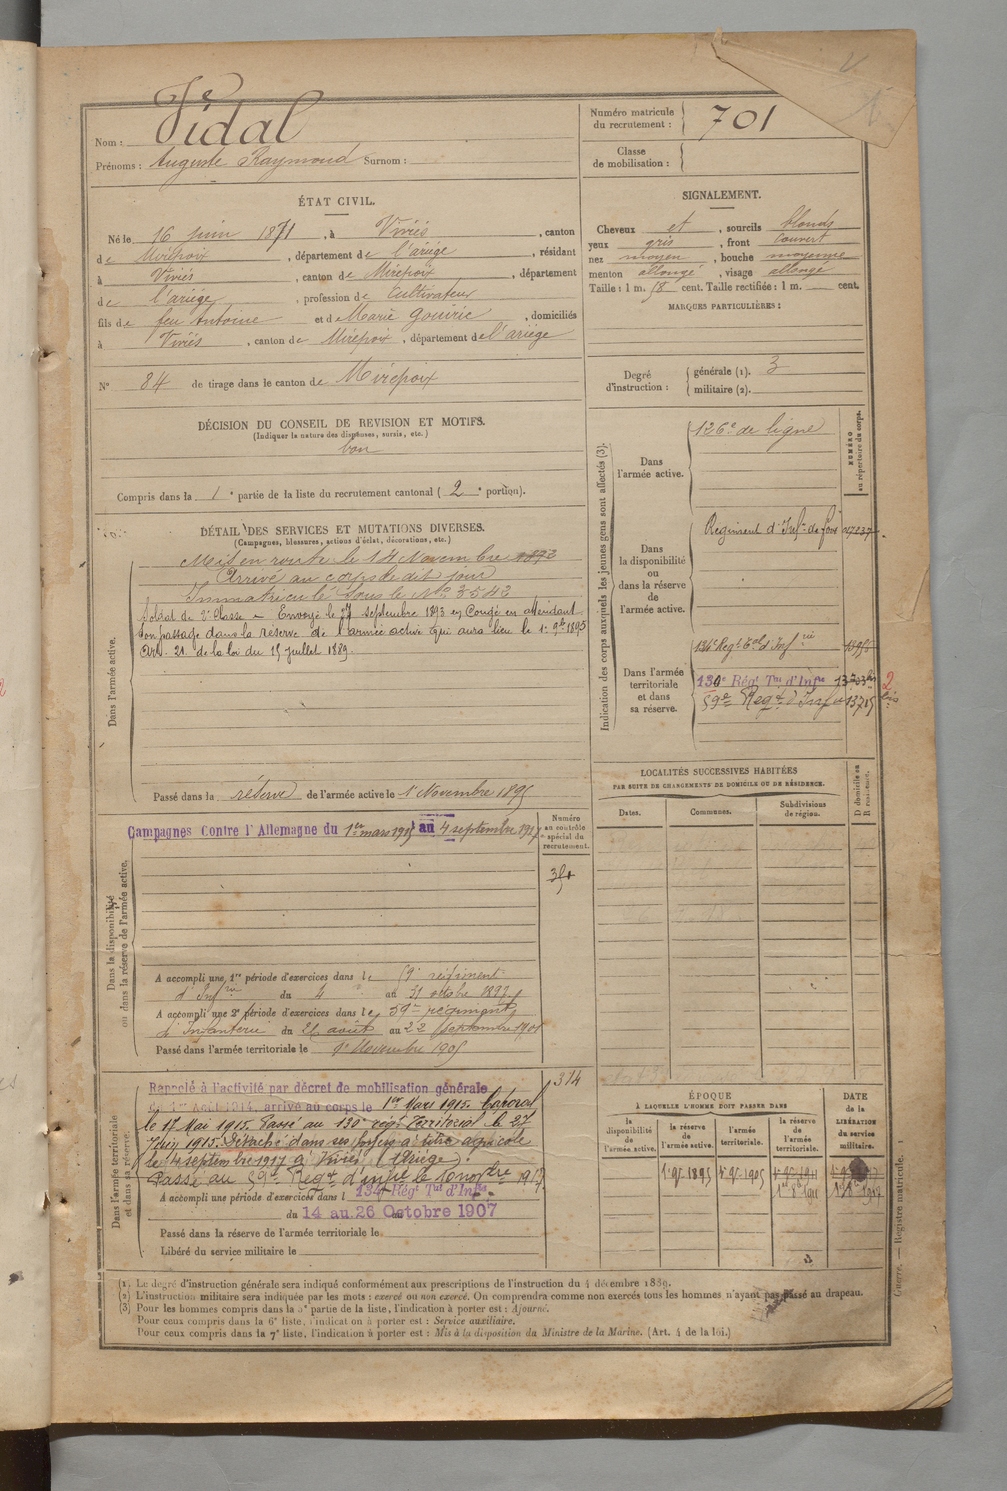 Nom : Vidal
Prénoms : Auguste Raymond Surnom :
Numéro matricule du recrutement : 701
Classe de mobilisation :
ÉTAT CIVIL.
Né le 16 juin 1871, à Viviés, canton
de Mirepoix, département de l'ariége, résidant
à Viviés, canton de Mirepoix, département
de l'ariége, profession de Cultivateur
fils de feu Antoine et de Marie Gouiric, domiciliés
à Viviés, canton de Mirepoix, département de l'ariége
N° 84 de tirage dans le canton de Mirepoix
SIGNALEMENT.
Cheveux et, sourcils blonds
yeux gris, front couvert
nez moyen, bouche moyenne
menton allongé, visage allongé
Taille : 1 m. 58 cent. Taille rectifiée : 1 m. cent.
MARQUES PARTICULIÈRES :
Degré d'instruction : générale (1). 3
militaire (2).
DÉCISION DU CONSEIL DE REVISION ET MOTIFS.
(Indiquer la nature des dispenses, sursis, etc.)
bon
Compris dans la 1e partie de la liste du recrutement cantonal (2e portion).
DÉTAIL DES SERVICES ET MUTATIONS DIVERSES.
(Campagnes, blessures, actions d'éclat, décorations, etc.)
Dans l'armée active.
Mis en route le 14 Novembre 1892
Arrivé au corps le dit jour
Immatriculé sous le No 3542
Soldat de 2e Classe – Envoyé le 27 septembre 1893 en Congé en attendant
son passage dans la réserve de l'armée active qui aura lieu le 1er 9bre 1895
Art. 21 de la loi du 15 juillet 1889.
Passé dans la réserve de l'armée active le 1er Novembre 1895
Indication des corps auxquels les jeunes gens sont affectés (3).
NUMÉRO au répertoire du corps.
Dans l'armée active.
126e de ligne
Dans la disponibilité ou dans la réserve de l'armée active.
Regiment d'Infie de foix
Dans l'armée territoriale et dans sa réserve.
134e Regt Tal d'Infie
130e Régt Tal d'Infie
59e Regt d'Infie 13715
2 bis
LOCALITÉS SUCCESSIVES HABITÉES
PAR SUITE DE CHANGEMENTS DE DOMICILE OU DE RÉSIDENCE.
Dates. Communes. Subdivisions de région. D domicile ou R résidence.
Dans la disponibilité ou dans la réserve de l'armée active.
Campagnes Contre l'Allemagne du 1er mars 1915 au 4 septembre 1917
Numéro au contrôle spécial du recrutement.
A accompli une 1re période d'exercices dans le 59e régiment
d'Infrie du 4 au 31 octobre 1897
A accompli une 2e période d'exercices dans le 59e régiment
d'Infanterie du 26 août au 22 septembre 1901
Passé dans l'armée territoriale le 1er Novembre 1905
Dans l'armée territoriale et dans sa réserve.
314
Rappelé à l'activité par décret de mobilisation générale
du 1er Août 1914, arrivé au corps le 1er Mars 1915. Caporal
le 17 Mai 1915. Passé au 130e régt Territorial le 27
Juin 1915. Détaché dans ses foyers à titre agricole
le 4 septembre 1917 à Viviés (Ariège).
Passé au 59e Regt d'Infie le 1er novbre 1917
A accompli une période d'exercices dans l 134e Régt Tal d'Infie
du 14 au 26 Octobre 1907
Passé dans la réserve de l'armée territoriale le
Libéré du service militaire le
ÉPOQUE
À LAQUELLE L'HOMME DOIT PASSER DANS
la disponibilité de l'armée active. la réserve de l'armée active. l'armée territoriale. la réserve de l'armée territoriale.
DATE de la LIBÉRATION du service militaire.
1er 9bre 1895 1er 9bre 1905 1er 9bre 1911
1er 8bre 1911 1er 8bre 1917
(1) Le degré d'instruction générale sera indiqué conformément aux prescriptions de l'instruction du 4 décembre 1889.
(2) L'instruction militaire sera indiquée par les mots : exercé ou non exercé. On comprendra comme non exercés tous les hommes n'ayant pas passé au drapeau.
(3) Pour les hommes compris dans la 5e partie de la liste, l'indication à porter est : Ajourné.
Pour ceux compris dans la 6e liste, l'indication à porter est : Service auxiliaire.
Pour ceux compris dans la 7e liste, l'indication à porter est : Mis à la disposition du Ministre de la Marine. (Art. 4 de la loi.)
Guerre. — Registre matricule. 1